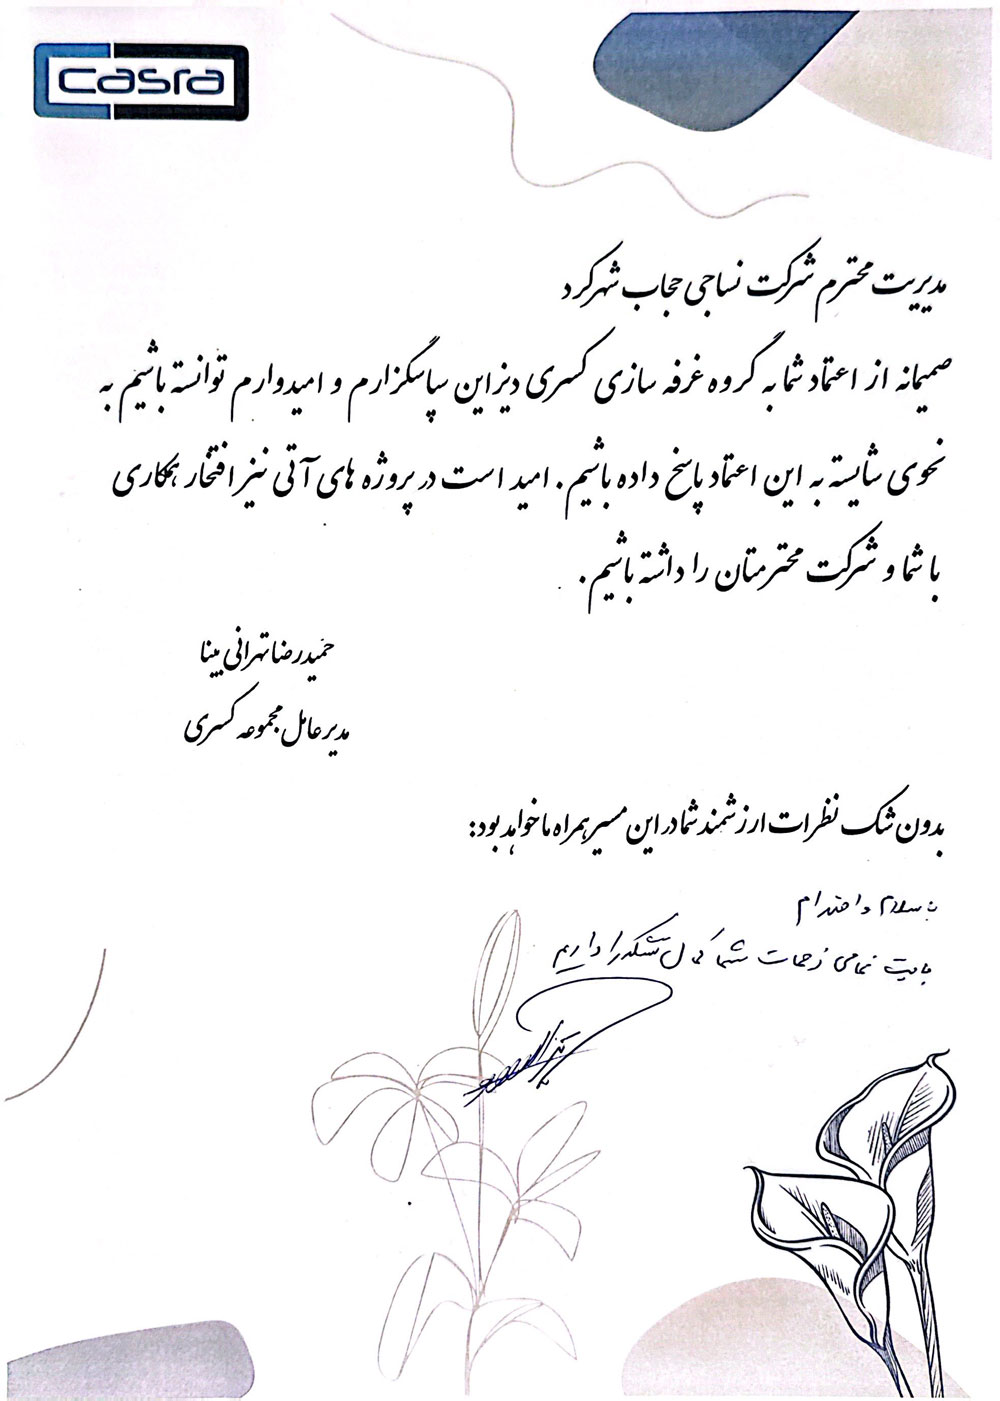 casra
مدیریت محترم شرکت نساجی حجاب شهرکرد
صمیمانه از اعتماد شما به گروه غرفه سازی کسری دیزاین سپاسگزارم و امیدوارم توانسته باشیم به
نحوی شایسته به این اعتماد پاسخ داده باشیم. امید است در پروژه های آتی نیز افتخار همکاری
با شما و شرکت محترمتان را داشته باشیم.
حمیدرضا تهرانی بینا
مدیرعامل مجموعه کسری
بدون شک نظرات ارزشمند شما در این مسیر همراه ما خواهد بود:
با سلام و احترام
بابت تمامی زحمات شما کمال تشکر را داریم